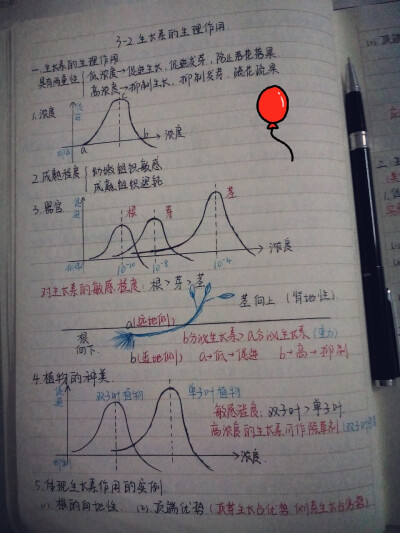 3-2 生长素的生理作用
一.生长素的生理作用
具有两重性
低浓度→促进生长,促进发芽,防止落花落果
高浓度→抑制生长,抑制发芽,疏花疏果
1.浓度
促进
抑制
a
c
b
浓度
2.成熟程度
幼嫩组织敏感
成熟组织迟钝
3.器官
促进
抑制
根
芽
茎
10⁻¹⁰
10⁻⁸
10⁻⁴
浓度
对生长素的敏感程度:根>芽>茎
茎向上(背地性)
a(远地侧)
根向下
b分泌生长素>a分泌生长素(重力)
b(近地侧) a→低→促进 b→高→抑制
4.植物的种类
促进
抑制
双子叶植物
单子叶植物
浓度
敏感程度:双子叶>单子叶
高浓度的生长素可作除草剂
5.体现生长素作用的实例
(1).根的向地性 (2).顶端优势(顶芽生长占优势